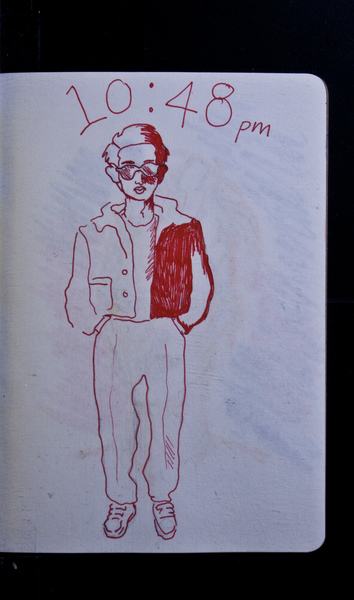 10:48 pm